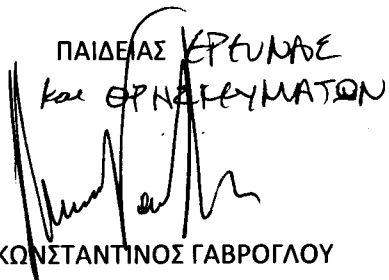 ΠΑΙΔΕΙΑΣ ΕΡΕΥΝΑΣ
και ΘΡΗΣΚΕΥΜΑΤΩΝ
ΚΩΝΣΤΑΝΤΙΝΟΣ ΓΑΒΡΟΓΛΟΥ